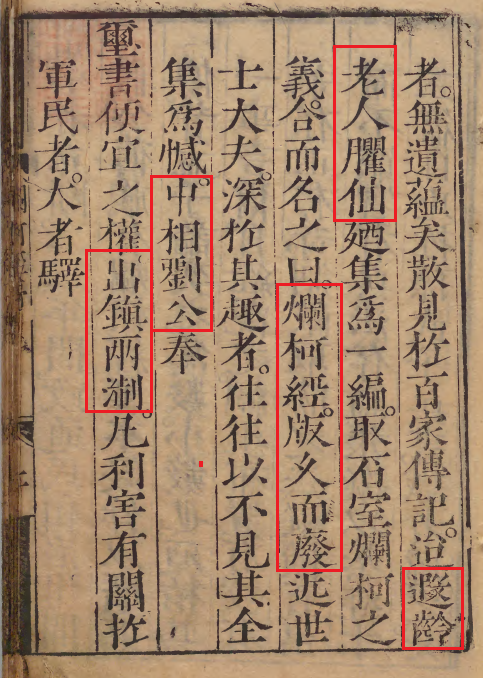 者。無遺蘊矣散見扵百家傳記。迨遐齡
老人臞仙廼集爲一編。取石室爛柯之
義。合而名之曰。爛柯經。版乆而廢近世
士大夫。深扵其趣者。往往以不見其全
集爲憾。中相劉公奉
璽書便宜之權。出鎮两淛。凡利害有關扵
軍民者。大者驛